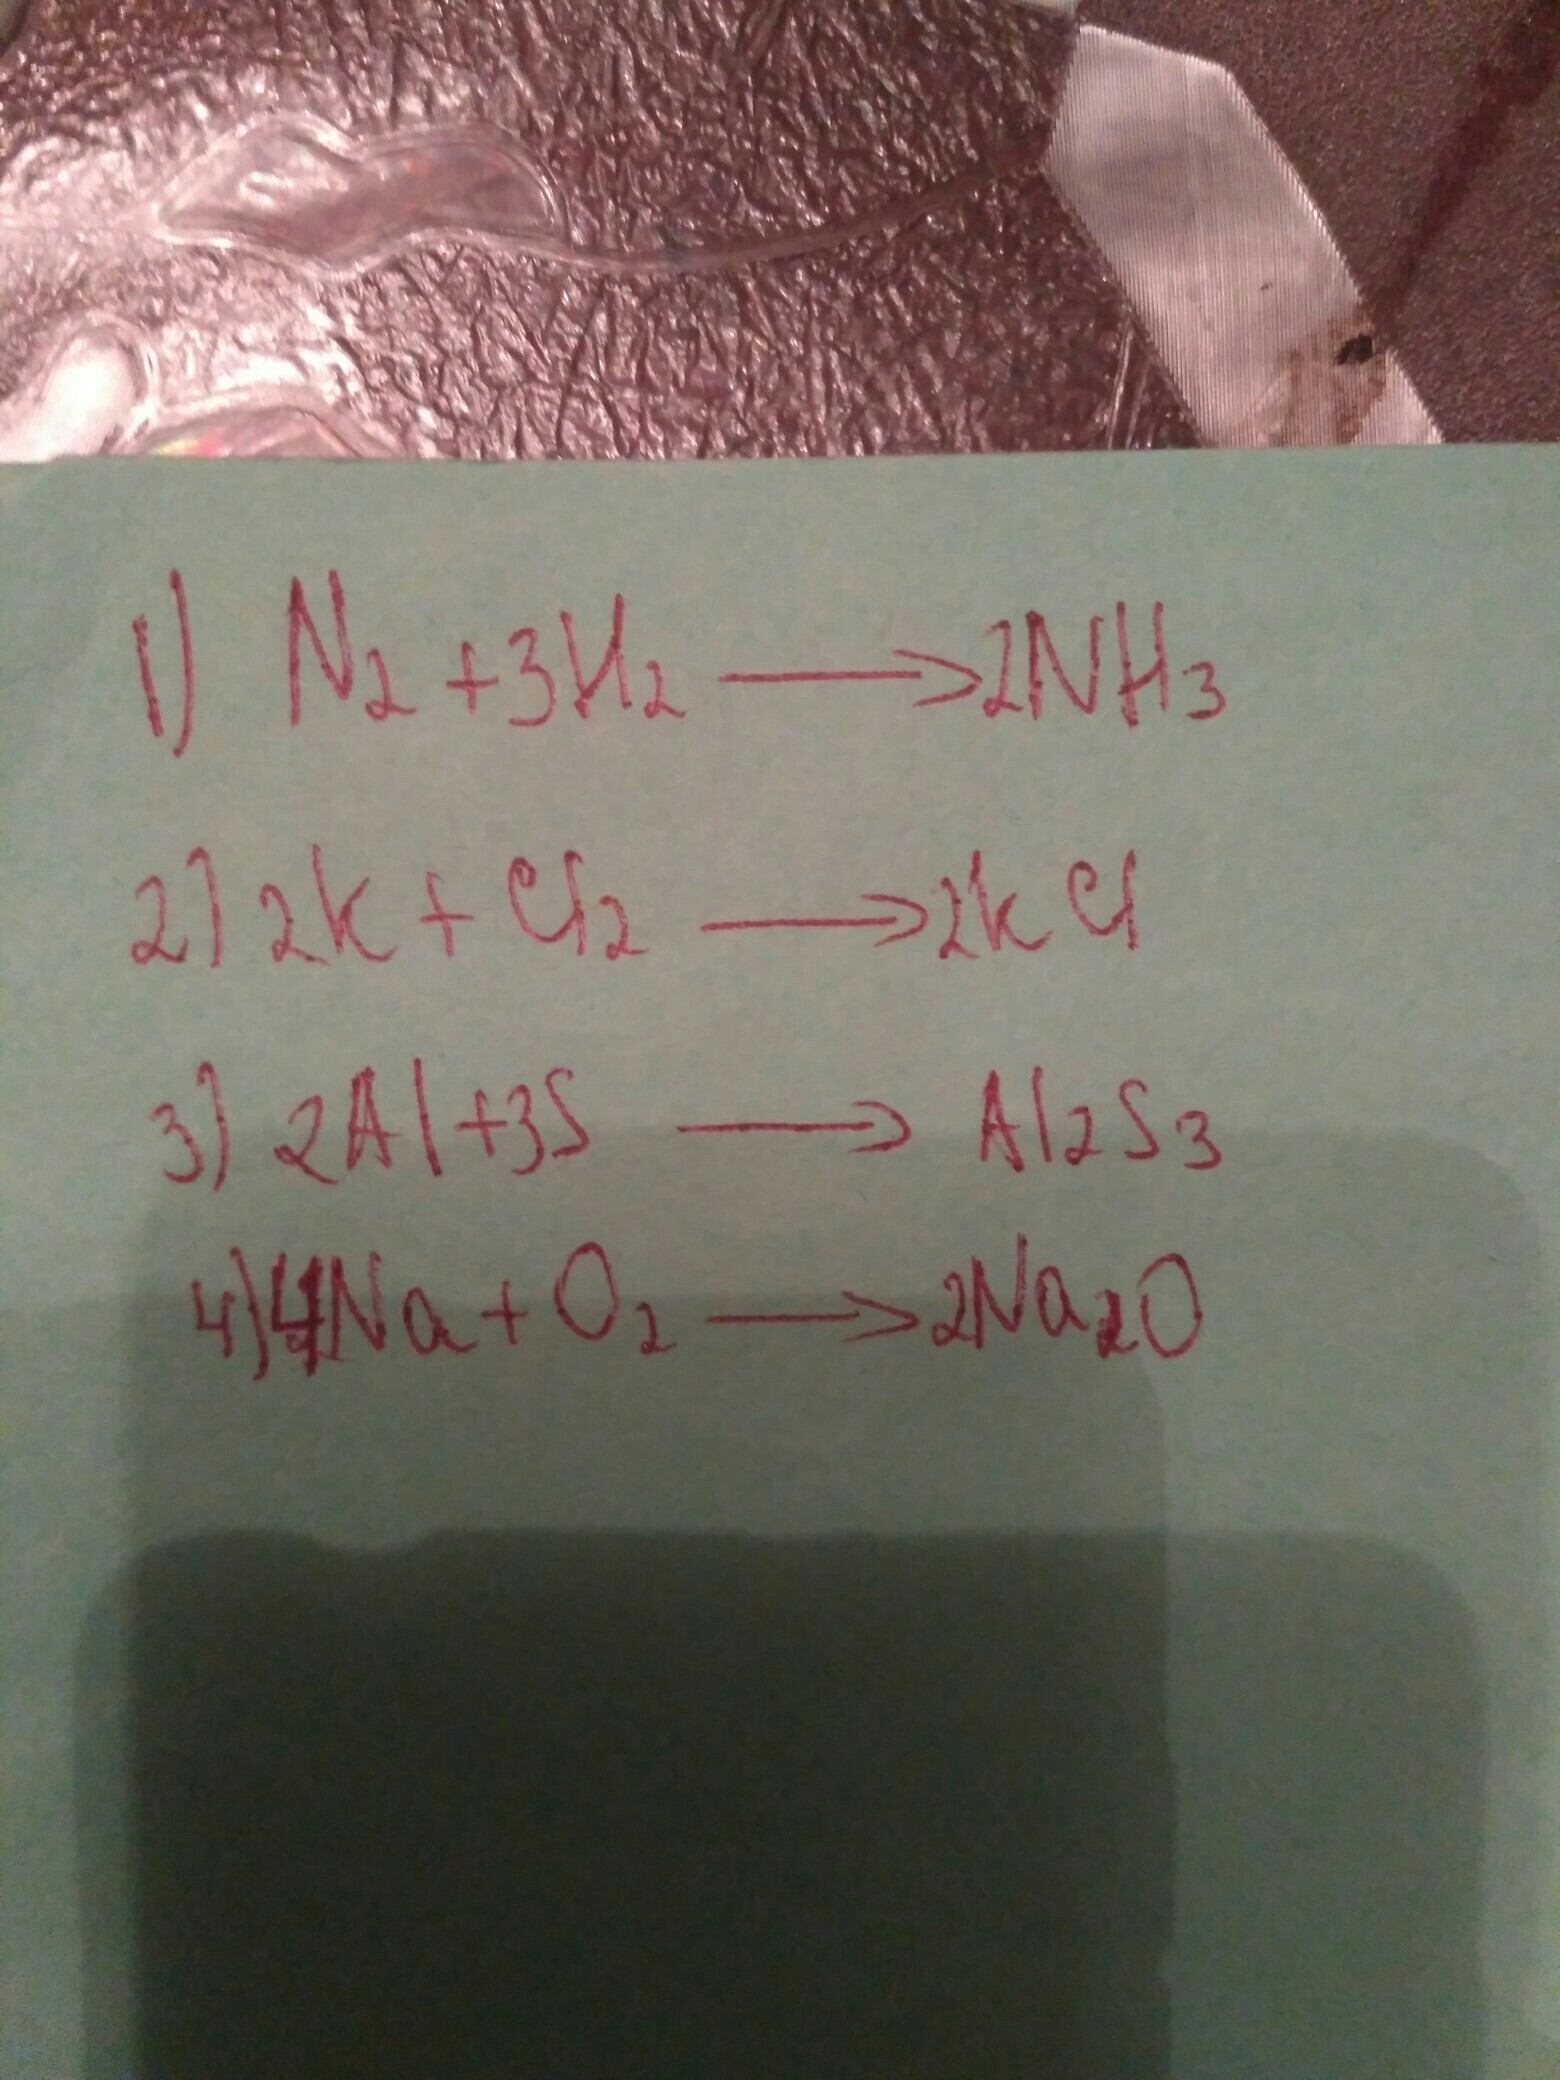 1) N₂ + 3H₂ → 2NH₃
2) 2k + Cl₂ → 2k Cl
3) 2Al + 3S → Al₂S₃
4) 4Na + O₂ → 2Na₂O